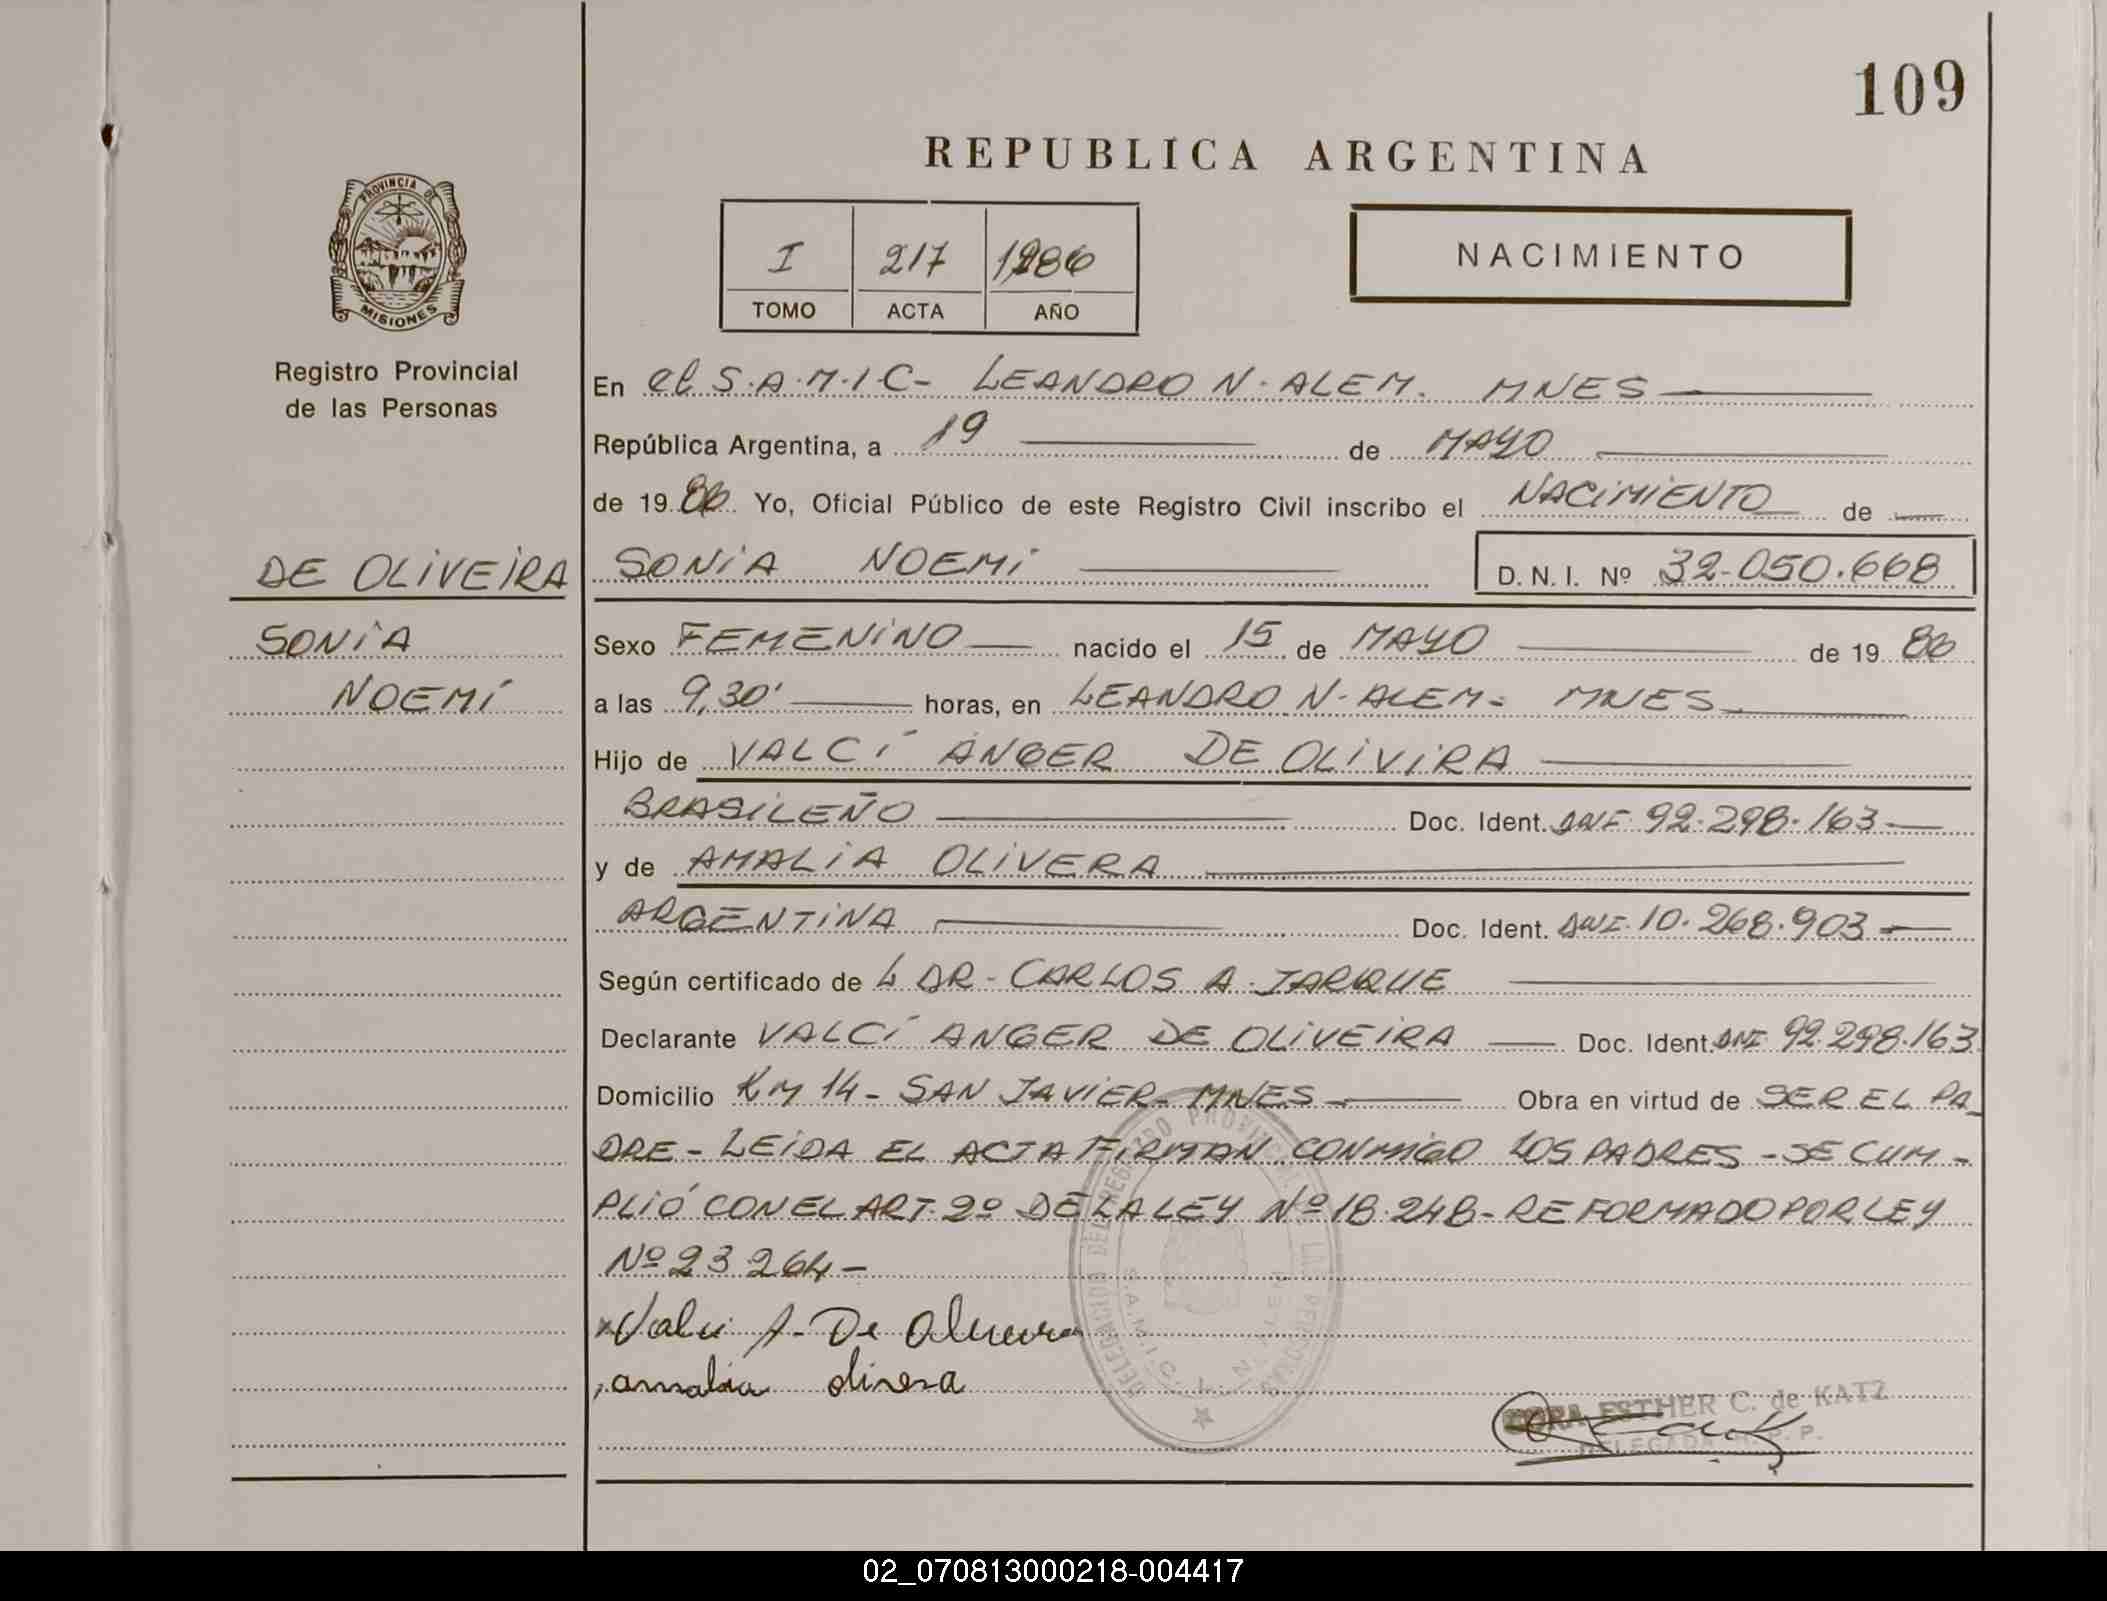 109
REPUBLICA ARGENTINA
I 217 1986
TOMO ACTA AÑO
NACIMIENTO
PROVINCIA DE
MISIONES
Registro Provincial
de las Personas
En el S.A.M.I.C- LEANDRO N. ALEM. MNES
República Argentina, a 19 de MAYO
de 19 86 Yo, Oficial Público de este Registro Civil inscribo el NACIMIENTO de
DE OLIVEIRA SONIA NOEMI D. N. I. Nº 32-050.668
SONIA
NOEMÍ
Sexo FEMENINO nacido el 15 de MAYO de 19 86
a las 9,30' horas, en LEANDRO N. ALEM- MNES
Hijo de VALCÍ ANGER DE OLIVIRA
BRASILEÑO Doc. Ident. DNI 92.298.163
y de AMALIA OLIVERA
ARGENTINA Doc. Ident. DNI. 10.268.903
Según certificado de L DR- CARLOS A. JARQUE
Declarante VALCÍ ANGER DE OLIVEIRA Doc. Ident. DNI 92.298.163
Domicilio KM 14- SAN JAVIER- MNES Obra en virtud de SER EL PA_
DRE - LEIDA EL ACTA FIRMAN CONMIGO LOS PADRES - SE CUM-
PLIÓ CON EL ART. 2º DE LA LEY Nº 18.248- REFORMADO POR LEY
Nº 23.264-
Valci A- De Oliveira
amalia olivera
DELEGACION DEL REGISTRO PROVINCIAL DE LAS PERSONAS
S.A.M.I.C. L. N. ALEM
ESTHER C. de KATZ
DELEGADA R. P. P.
02_070813000218-004417